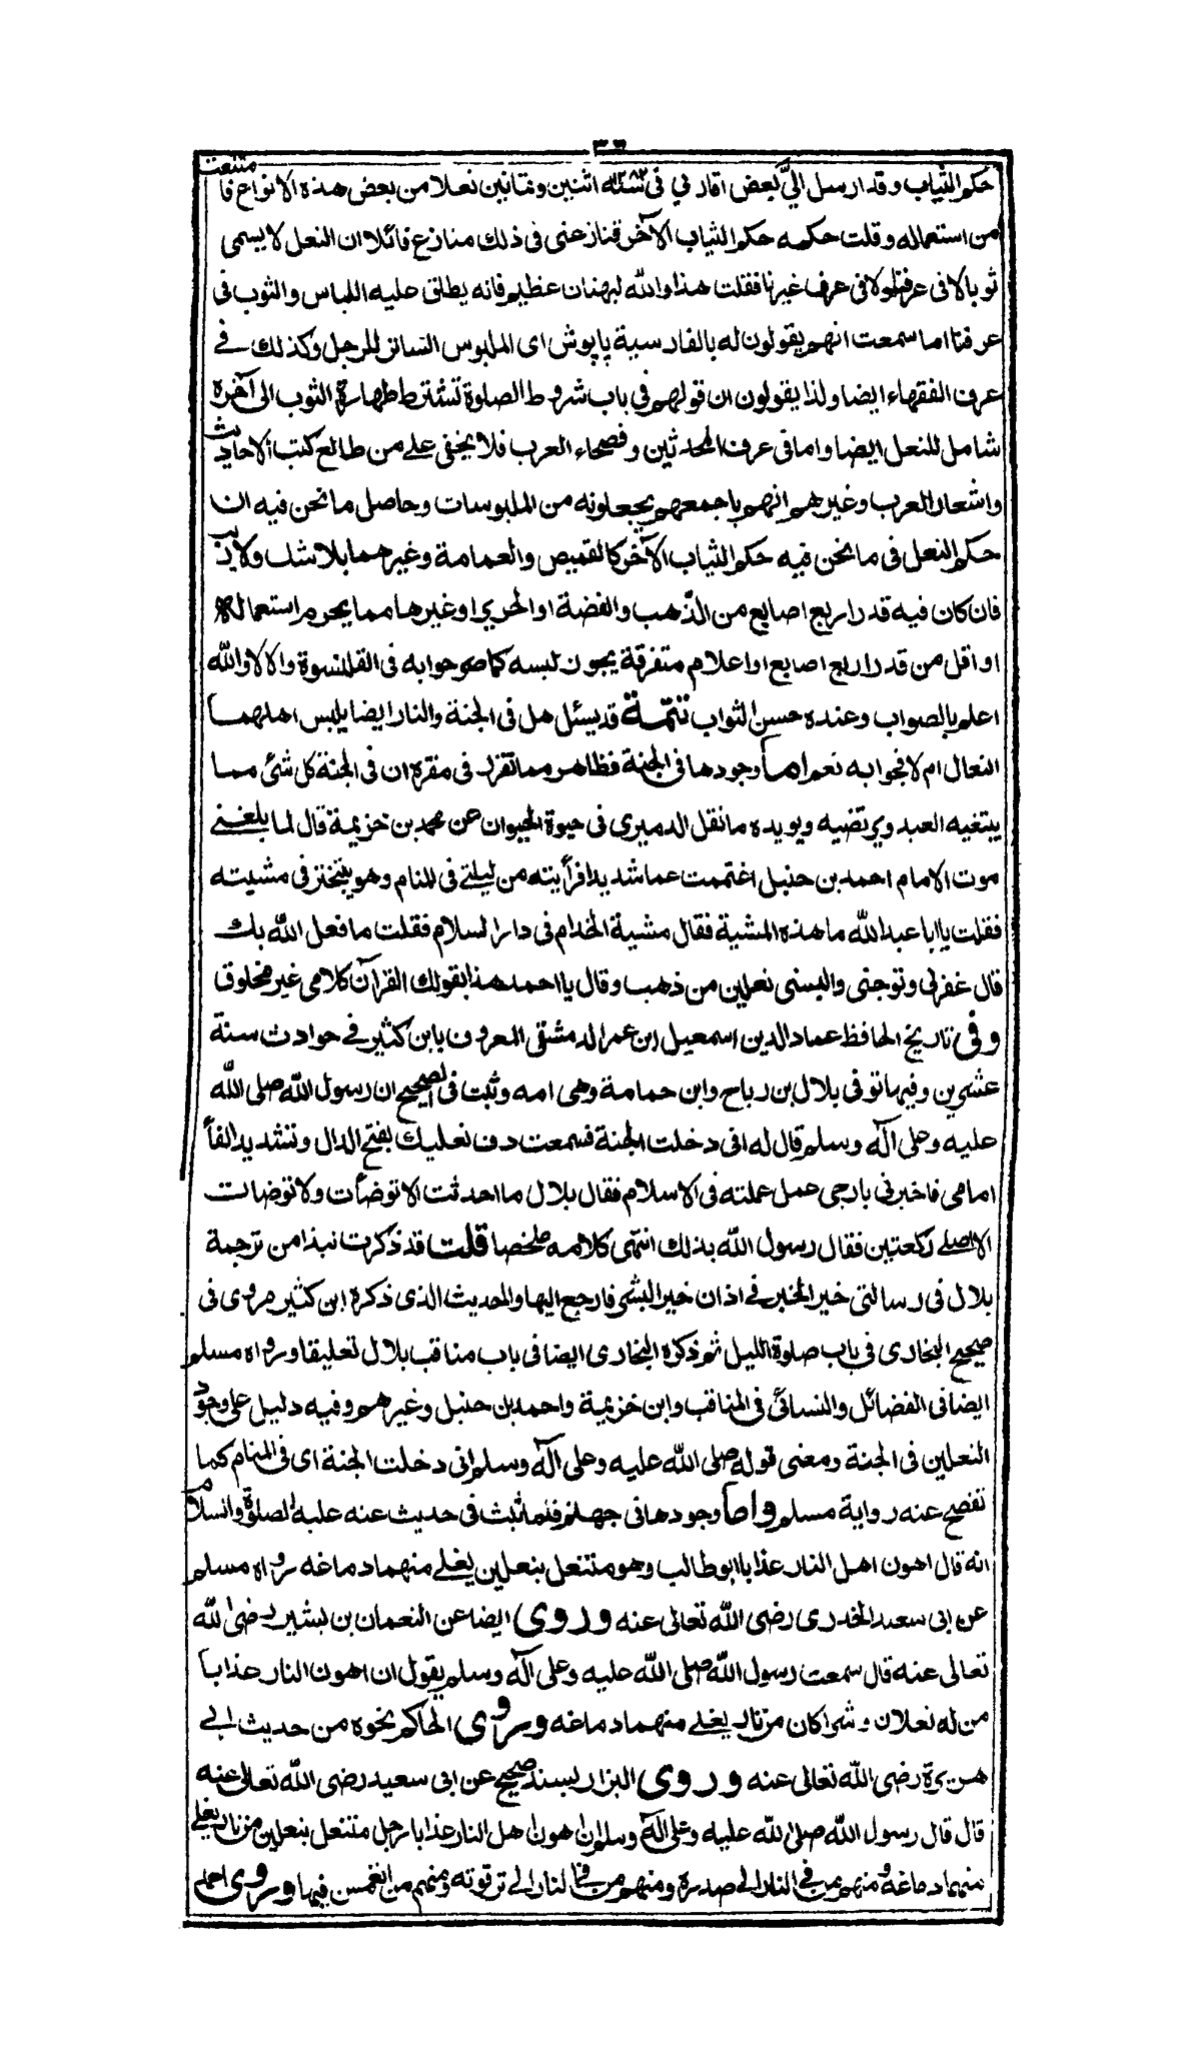 ٣٦
حكم الثياب وقد ارسل الىّ بعض اقاربي في سنة ١٢٨٢ اثنين وثمانين نعلا من بعض هذه الانواع فامتنعت
من استعماله وقلت حكمه حكم الثياب الآخر فنازعنى فى ذلك منازع قائلا ان النعل لا يسمى
ثوبا لا فى عرفنا ولا فى عرف غيرنا فقلت هذا والله لبهتان عظيم فانه يطلق عليه اللباس والثوب فى
عرفنا اما سمعت انهم يقولون له بالفارسية پاپوش اى الملبوس الساتر للرجل وكذلك في
عرف الفقهاء ايضا ولذا يقولون ان قولهم فى باب شروط الصلوة تشترط طهارة الثوب الى آخره
شامل للنعل ايضا واما فى عرف المحدثين وفصحاء العرب فلا يخفى على من طالع كتب الاحاديث
واشعار العرب وغيرهم انهم باجمعهم يجعلونه من الملبوسات وحاصل ما نحن فيه ان
حكم النعل فى ما نحن فيه حكم الثياب الآخر كالقميص والعمامة وغيرهما بلا شك ولا ريب
فان كان فيه قدر اربع اصابع من الذهب والفضة او الحرير او غيرها مما يحرم استعماله
او اقل من قدر اربع اصابع او اعلام متفرقة يجوز لبسه كما هو جوابه فى القلنسوة والا لا والله
اعلم بالصواب وعنده حسن الثواب تتمّة قد يسئل هل فى الجنة والنار ايضا يلبس اهلهما
النعال ام لا فجوابه نعم اما وجودها فى الجنة فظاهر مما تقرر فى مقره ان فى الجنة كل شئ مما
يبتغيه العبد ويرتضيه ويويده ما نقل الدميرى فى حيوة الحيوان عن محمد بن خزيمة قال لما بلغني
موت الامام احمد بن حنبل اغتممت غما شديدا فرأيته من ليلتي فى المنام وهو يتبختر فى مشيته
فقلت يا ابا عبد الله ما هذه المشية فقال مشية الخدام فى دار السلام فقلت ما فعل الله بك
قال غفر لى وتوجنى والبسنى نعلين من ذهب وقال يا احمد هذا بقولك القرآن كلامى غير مخلوق
وفى تاريخ الحافظ عماد الدين اسمعيل ابن عمر الدمشقى المعروف بابن كثير في حوادث سنة
عشرين وفيها توفى بلال بن رباح وابن حمامة وهى امه وثبت فى الصحيح ان رسول الله صلى الله
عليه وعلى آله وسلم قال له انى دخلت الجنة فسمعت دف نعليك بفتح الدال وتشديد الفاء
امامى فاخبرنى بارجى عمل عملته فى الاسلام فقال بلال ما احدثت الا توضأت ولا توضات
الا اصلي ركعتين فقال رسول الله بذلك انتهى كلامه ملخصا قلت قد ذكرت نبذا من ترجمة
بلال فى رسالتى خير الخبر في اذان خير البشر فارجع اليها والحديث الذى ذكره ابن كثير مروى فى
صحيح البخارى فى باب صلوة الليل ثم ذكره البخارى ايضا فى باب مناقب بلال تعليقا ورواه مسلم
ايضا فى الفضائل والنسائى فى المناقب وابن خزيمة واحمد بن حنبل وغيرهم وفيه دليل على وجود
النعلين فى الجنة ومعنى قوله صلى الله عليه وعلى آله وسلم انى دخلت الجنة اى فى المنام كما
تفصح عنه رواية مسلم واما وجودها فى جهنم فلما ثبث فى حديث عنه عليه الصلوة والسلام
انه قال اهون اهل النار عذابا ابو طالب وهو منتعل بنعلين يغلي منهما دماغه رواه مسلم
عن ابى سعيد الخدرى رضى الله تعالى عنه وروى ايضا عن النعمان بن بشير رضى الله
تعالى عنه قال سمعت رسول الله صلى الله عليه وعلى آله وسلم يقول ان اهون النار عذابا
من له نعلان وشراكان من نار يغلي منهما دماغه وروى الحاكم نحوه من حديث ابي
هريرة رضى الله تعالى عنه وروى البزار بسند صحيح عن ابى سعيد رضى الله تعالى عنه
قال قال رسول الله صلى الله عليه وعلى آله وسلم ان اهون اهل النار عذابا رجل منتعل بنعلين من نار يغلي
منهما دماغه ومنهم من في النار الى صدره ومنهم من في النار الى ترقوته ومنهم من انغمس فيها وروى احمد